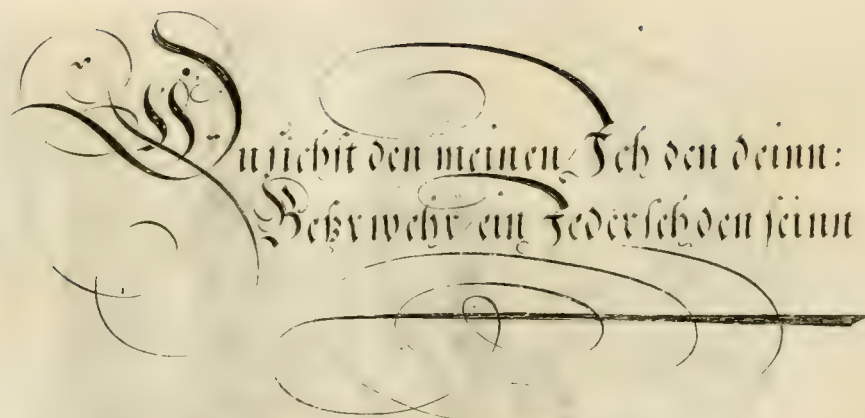 Du siehst den meinen/ Ich den deinn:
Beßr wehr/ ein Jeder seh den seinn